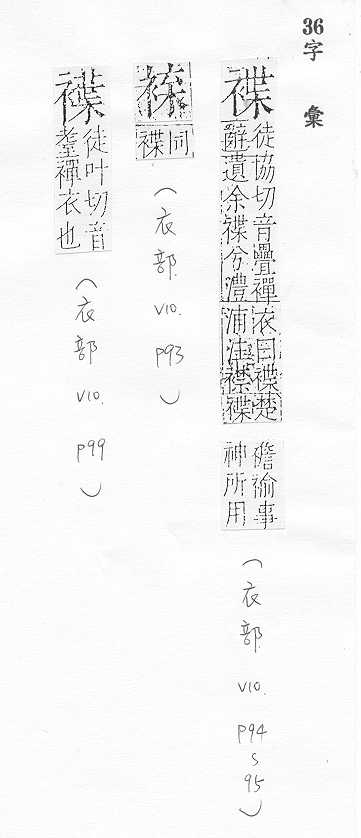 36
字彙
褋
徒協切音疊襌衣曰褋楚
辭遺余褋兮澧浦注襟褋
襜褕事
神所用
（衣部 V10. P94 S 95）
同
褋
（衣部 V10. P93）
徒叶切音
耋襌衣也
（衣部 V10. P99）